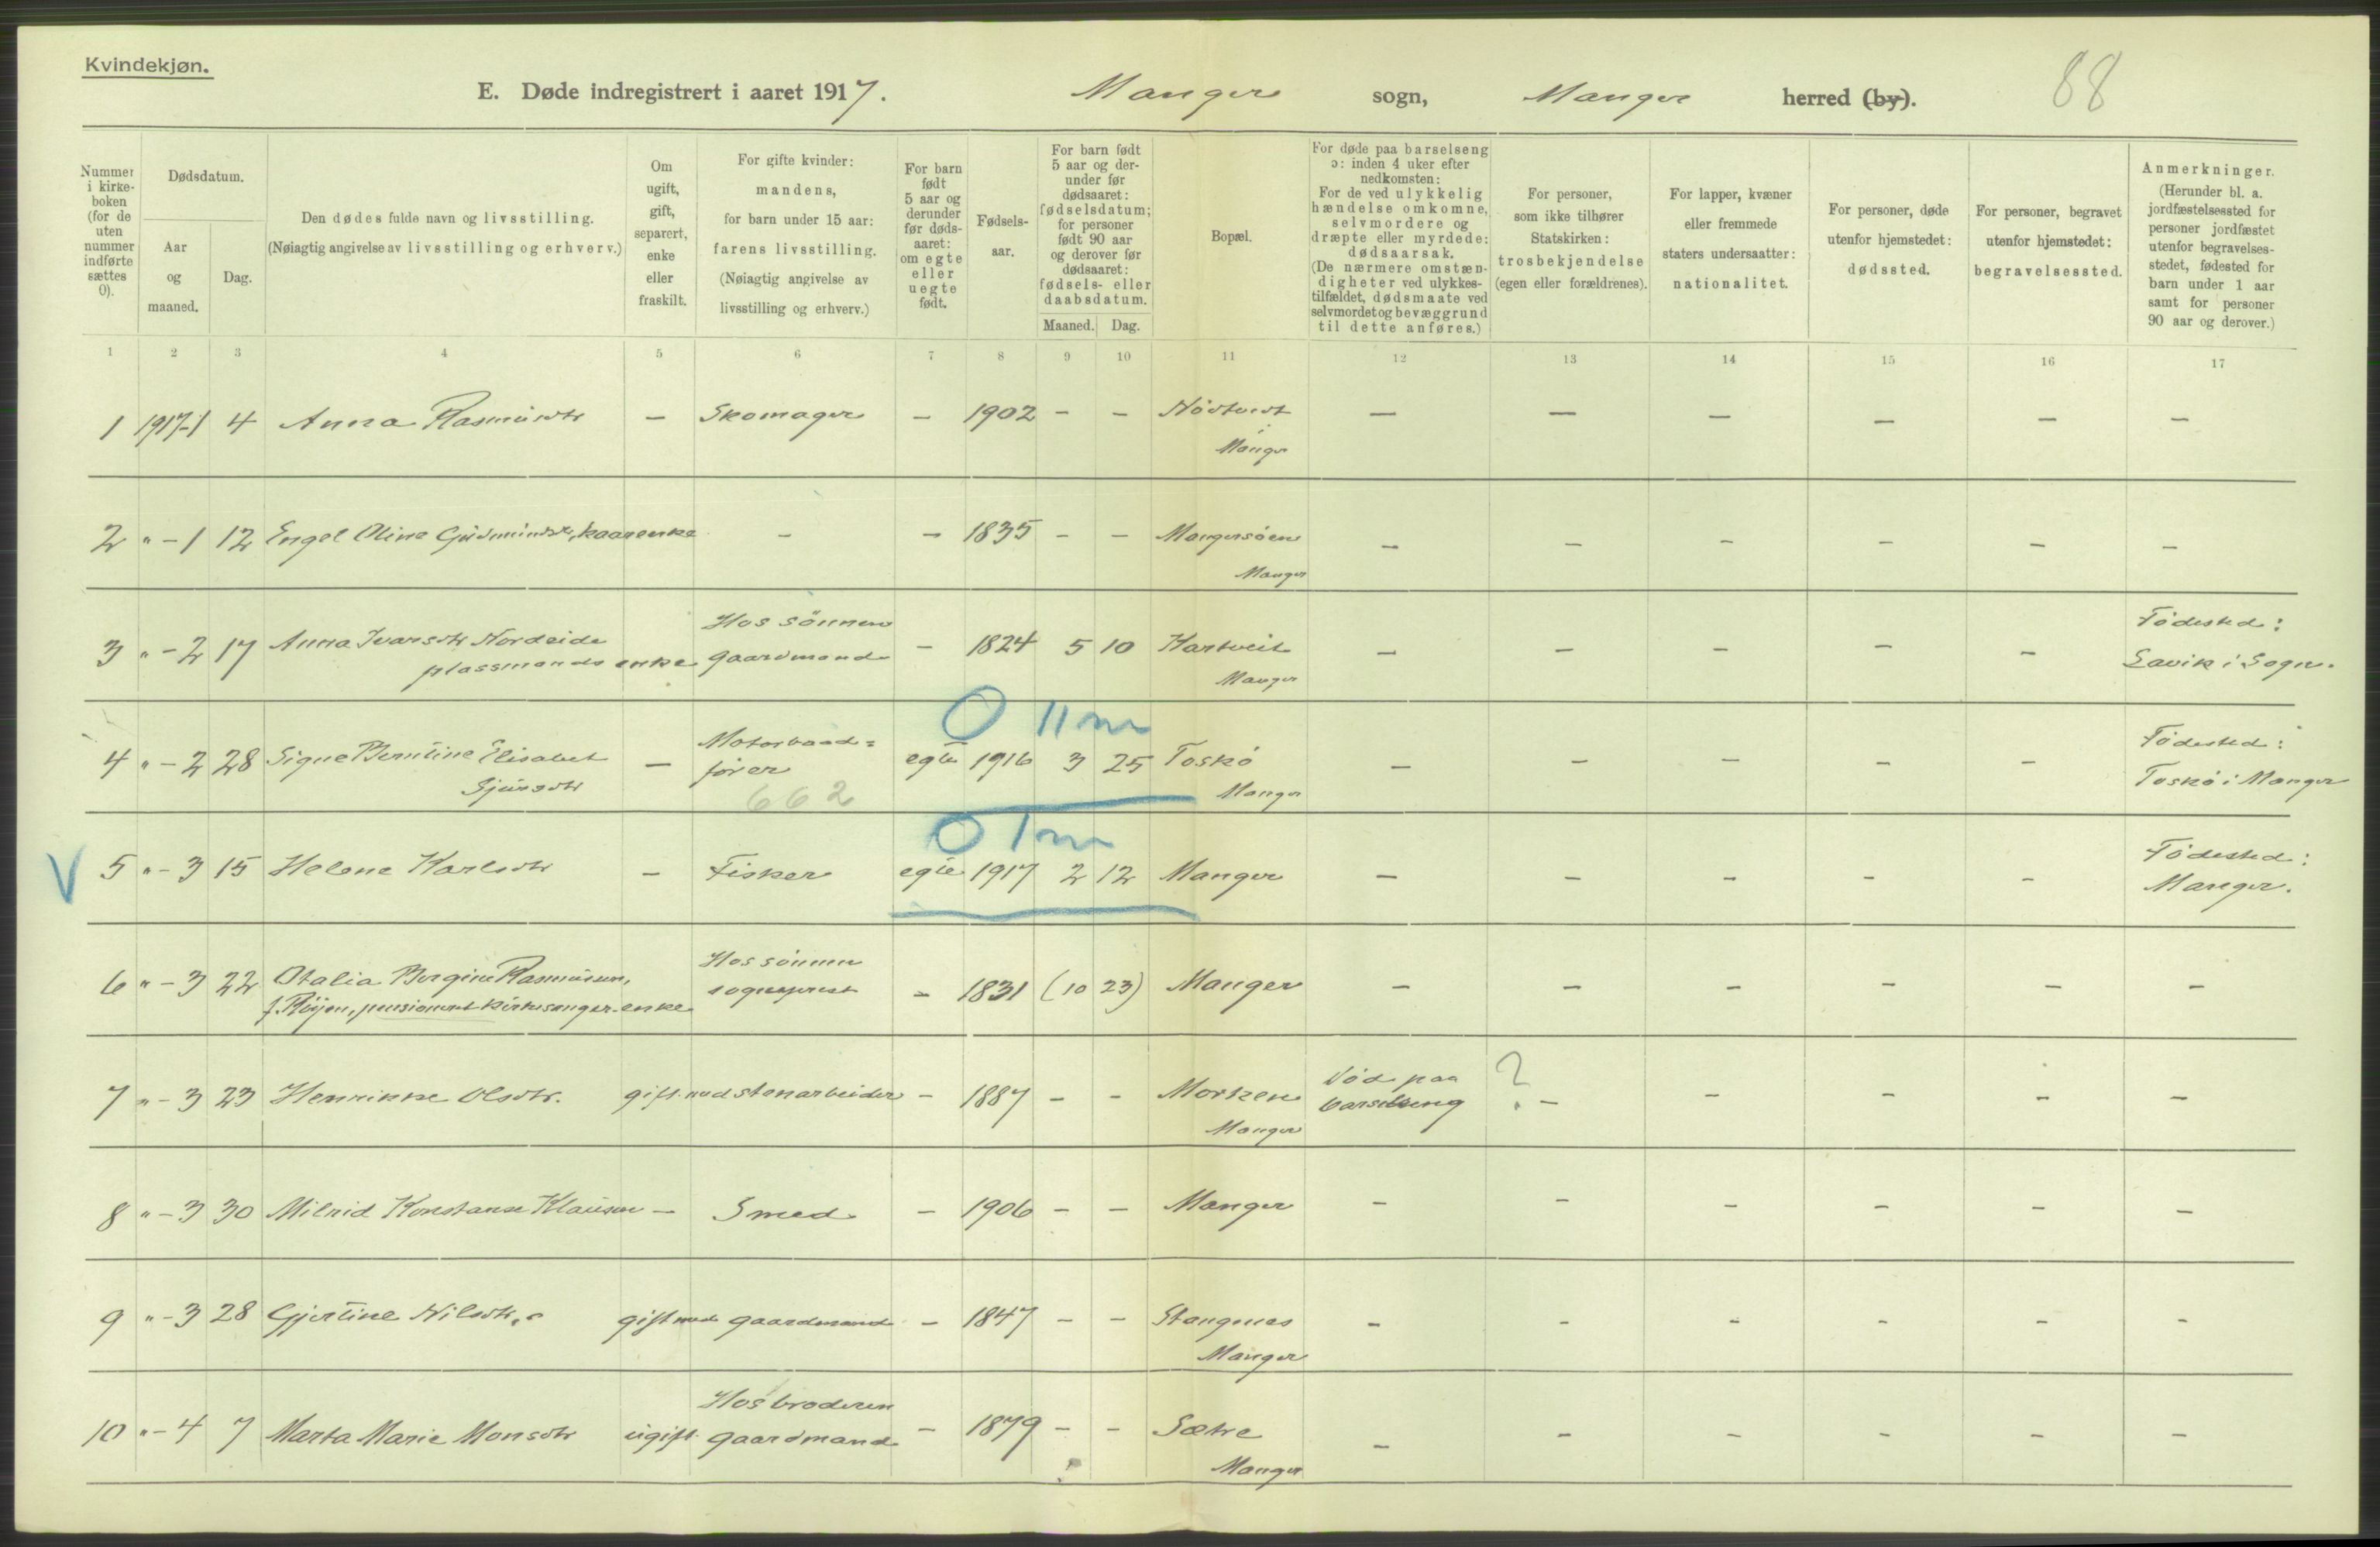 Kvindekjøn.
E. Døde indregistrert i aaret 1917. Manger sogn, Manger herred (by). 88
Nummer i kirkeboken (for de uten nummer indførte sættes 0).
Dødsdatum.
Aar og maaned.
Dag.
Den dødes fulde navn og livsstilling.
(Nøiagtig angivelse av livsstilling og erhverv.)
Om ugift, gift, separert, enke eller fraskilt.
For gifte kvinder: mandens, for barn under 15 aar: farens livsstilling. (Nøiagtig angivelse av livsstilling og erhverv.)
For barn født 5 aar og derunder før dødsaaret: om egte eller uegte født.
Fødselsaar.
For barn født 5 aar og derunder før dødsaaret: fødselsdatum; for personer født 90 aar og derover før dødsaaret: fødsels- eller daabsdatum.
Maaned. Dag.
Bopæl.
For døde paa barselseng ɔ: inden 4 uker efter nedkomsten: For de ved ulykkelig hændelse omkomne, selvmordere og dræpte eller myrdede: dødsaarsak. (De nærmere omstændigheter ved ulykkestilfældet, dødsmaate ved selvmordet og bevæggrund til dette anføres.)
For personer, som ikke tilhører Statskirken: trosbekjendelse (egen eller forældrenes).
For lapper, kvæner eller fremmede staters undersaatter: nationalitet.
For personer, døde utenfor hjemstedet: dødssted.
For personer, begravet utenfor hjemstedet: begravelsessted.
Anmerkninger. (Herunder bl. a. jordfæstelsessted for personer jordfæstet utenfor begravelsesstedet, fødested for barn under 1 aar samt for personer 90 aar og derover.)
1 2 3 4 5 6 7 8 9 10 11 12 13 14 15 16 17
1 1917-1 4 Anna Rasmusdtr – Skomager – 1902 – – – – – – – –
Manger
2 " – 1 12 Engel Oline Gudmundsdtr, kaarenke – – 1835 – – Mangersøen – – – – – –
Manger
Hos sønnen Fødested:
3 " – 2 17 Anna Ivarsdtr Nordeide – 1824 5 10 Hartveit – – – – –
plassmands enke gaardmand Manger Lavik i Sogn.
0 11 m
Motorbaad= Fødested:
4 " – 2 28 Signe Berntine Elisabet – fører egte 1916 3 25 Toskø – – – – –
Sjursdtr 662 Manger Toskø i Manger
0 1 m
Fødested:
V 5 " – 3 15 Helene Karlsdtr – Fisker egte 1917 2 12 Manger – – – – – Manger.
Hos sønnen
6 " – 3 22 Otalia Bergine Rasmussen, sogneprest – 1831 (10 23) Manger – – – – – –
f. Røijen, pensioneret kirkesanger-enke
Død paa ?
7 " – 3 23 Henrikke Olsdtr. gift med stenarbeider – 1887 – – Morken barselseng – – – – –
Manger
8 " – 3 30 Milrid Konstanse Klausen – Smed – 1906 – – Manger – – – – – –
9 " – 3 28 Gjertine Nilsdtr. gift med gaardmand – 1847 – – Stangnes – – – – – –
Manger
Hos broderen
10 " – 4 7 Marta Marie Monsdtr ugift gaardmand – 1879 – – Sætre – – – – – –
Manger